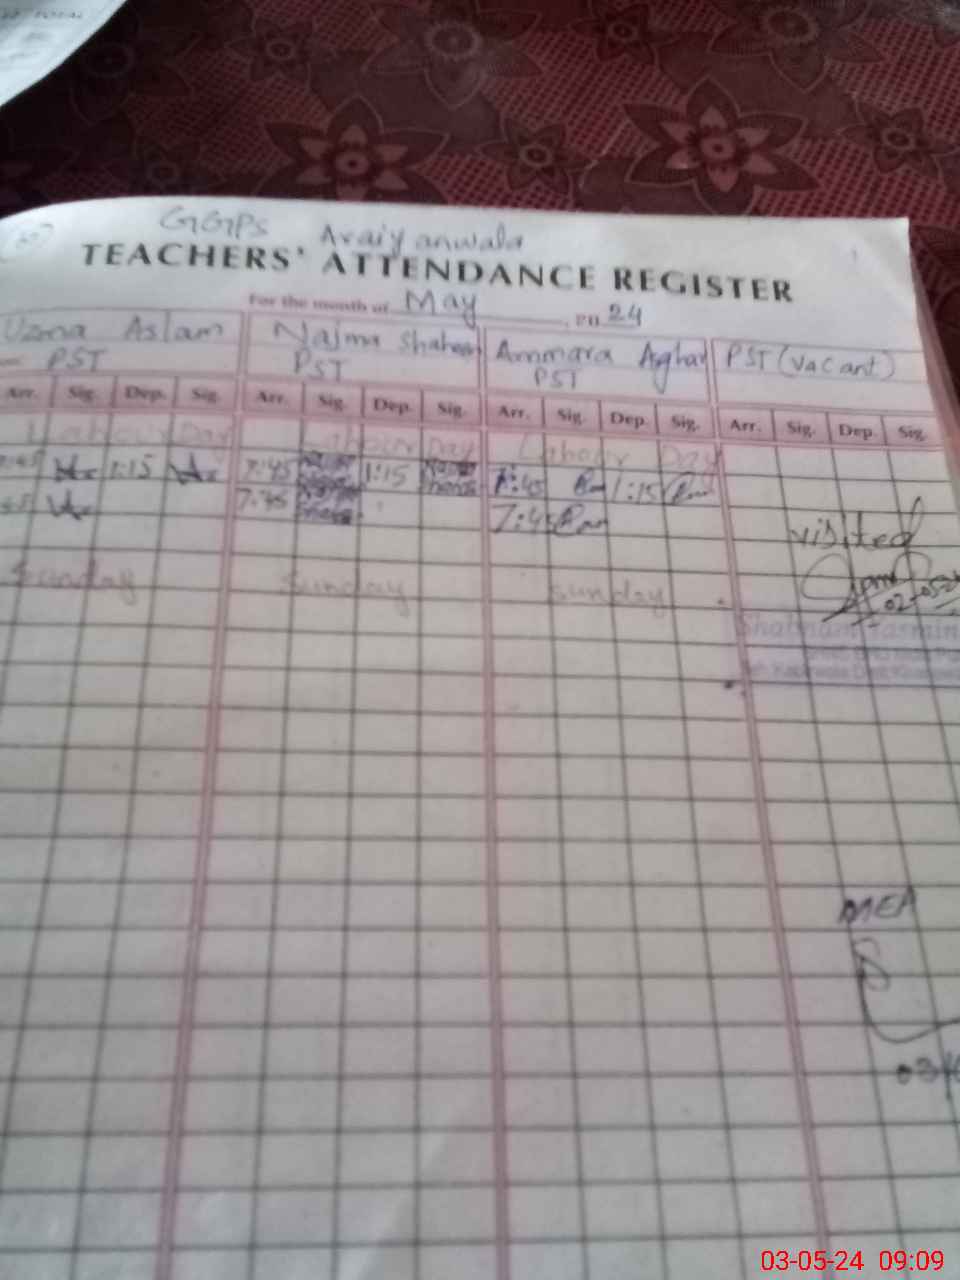 GGPS Araiyanwala
TEACHERS' ATTENDANCE REGISTER
For the month of May 24
Uzma Aslam Najma Shaheen Ammara Asghar PST (Vacant)
PST PST PST
Arr. Sig. Dep. Sig. Arr. Sig. Dep. Sig. Arr. Sig. Dep. Sig. Arr. Sig. Dep. Sig.
Labour Day Labour Day Labour Day
7:45 1:15 7:45 1:15 7:45 1:15
7:45 7:45
visited
Sunday Sunday Sunday
02-05-24
Shabnam Yasmin
MEA
03-05-24 09:09